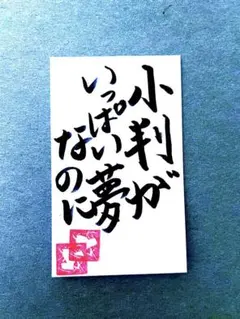 小判が
いっぱい夢
なのに